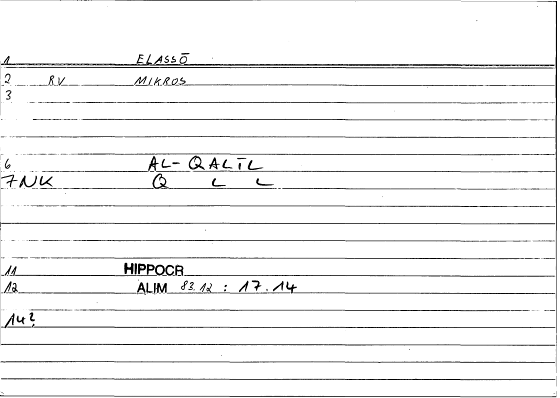 1 ELASSŌ
2 RV MIKROS
3
6 AL-QALĪL
7NK Q L L
11 HIPPOCR
12 ALIM 83.12 : 17.14
14?